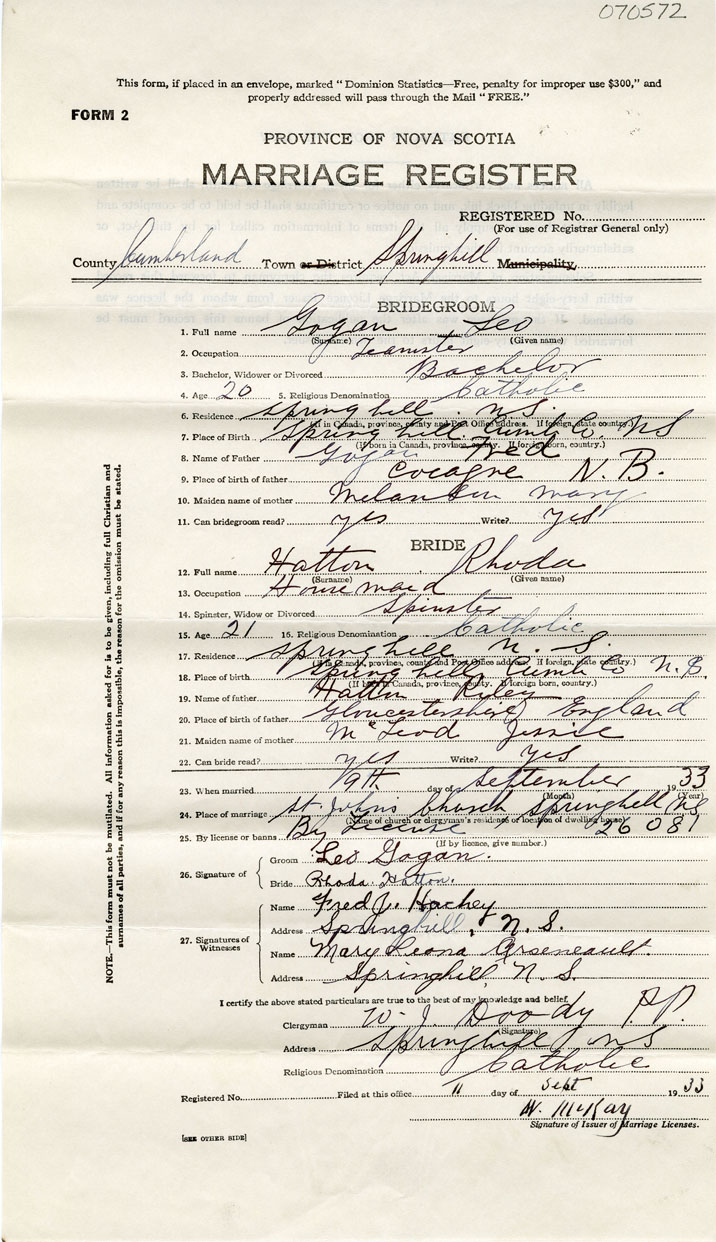 070572
This form, if placed in an envelope, marked "Dominion Statistics—Free, penalty for improper use $300," and
properly addressed will pass through the Mail "FREE."
FORM 2
PROVINCE OF NOVA SCOTIA
MARRIAGE REGISTER
REGISTERED No.
(For use of Registrar General only)
County Cumberland Town or District Springhill Municipality
BRIDEGROOM
1. Full name Gogan Leo
(Surname) (Given name)
2. Occupation Teamster
3. Bachelor, Widower or Divorced Bachelor
4. Age 20 5. Religious Denomination Catholic
6. Residence Springhill. N.S.
(If in Canada, province, county and Post Office address. If foreign, state country.)
7. Place of Birth Springhill Cumb Co NS
(If born in Canada, province, county. If foreign born, country.)
8. Name of Father Gogan Fred
9. Place of birth of father Cocagne N.B.
10. Maiden name of mother Melanson Mary
11. Can bridegroom read? yes Write? yes
BRIDE
12. Full name Hatton Rhoda
(Surname) (Given name)
13. Occupation Housemaid
14. Spinster, Widow or Divorced Spinster
15. Age 21 16. Religious Denomination Catholic
17. Residence Springhill N. S.
(If in Canada, province, county and Post Office address. If foreign, state country.)
18. Place of birth Springhill Cumb Co N.S.
(If born in Canada, province, county. If foreign born, country.)
19. Name of father Hatton Riley
20. Place of birth of father Gloucestershire England
21. Maiden name of mother McLeod Jessie
22. Can bride read? yes Write? yes
23. When married 9th day of September 1933
(Month) (Year)
24. Place of marriage St. Johns Church Springhill NS
(Name of church or clergyman's residence or location of dwelling house)
25. By license or banns By License 26081
(If by licence, give number.)
26. Signature of
Groom Leo Gogan.
Bride Rhoda Hatton.
27. Signatures of Witnesses
Name Fred J. Hachey
Address Springhill, N. S.
Name Mary Leona Arseneault.
Address Springhill, N. S.
I certify the above stated particulars are true to the best of my knowledge and belief,
Clergyman W. J. Doody P.P.
(Signature)
Address Springhill NS
Religious Denomination Catholic
Registered No. Filed at this office 11 day of Sept 1933
W. McKay
Signature of Issuer of Marriage Licenses.
[SEE OTHER SIDE]
NOTE.—This form must not be mutilated. All information asked for is to be given, including full Christian and
surnames of all parties, and if for any reason this is impossible, the reason for the omission must be stated.